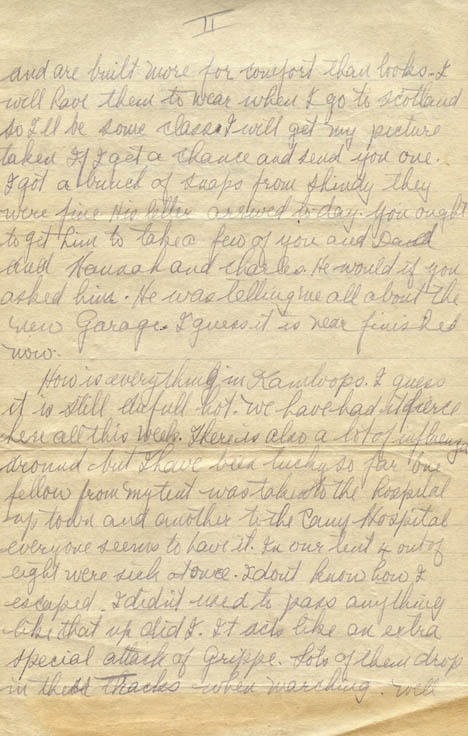 II
and are built more for comfort than looks. I
will have them to wear when I go to Scotland
so I'll be some class. I will get my picture
taken if I get a chance and send you one.
I got a bunch of snaps from Shindy they
were fine His letter arrived to day. you ought
to get him to take a few of you and David
and Hannah and Charles. He would if you
asked him. He was telling me all about the
new Garage. I guess it is near finished
now.
How is everything in Kamloops. I guess
it is still awfull hot. We have had it fierce
here all this week. There is also a lot of influenza
around but I have been lucky so far one
fellow from my tent was taken to the hospital
up town and another to the Camp Hospital
everyone seems to have it. In our tent 4 out of
eight were sick at once. I dont know how I
escaped. I didn't used to pass anything
like that up did I. It acts like an extra
special attack of Grippe. Lots of them drop
in their tracks when marching. Well